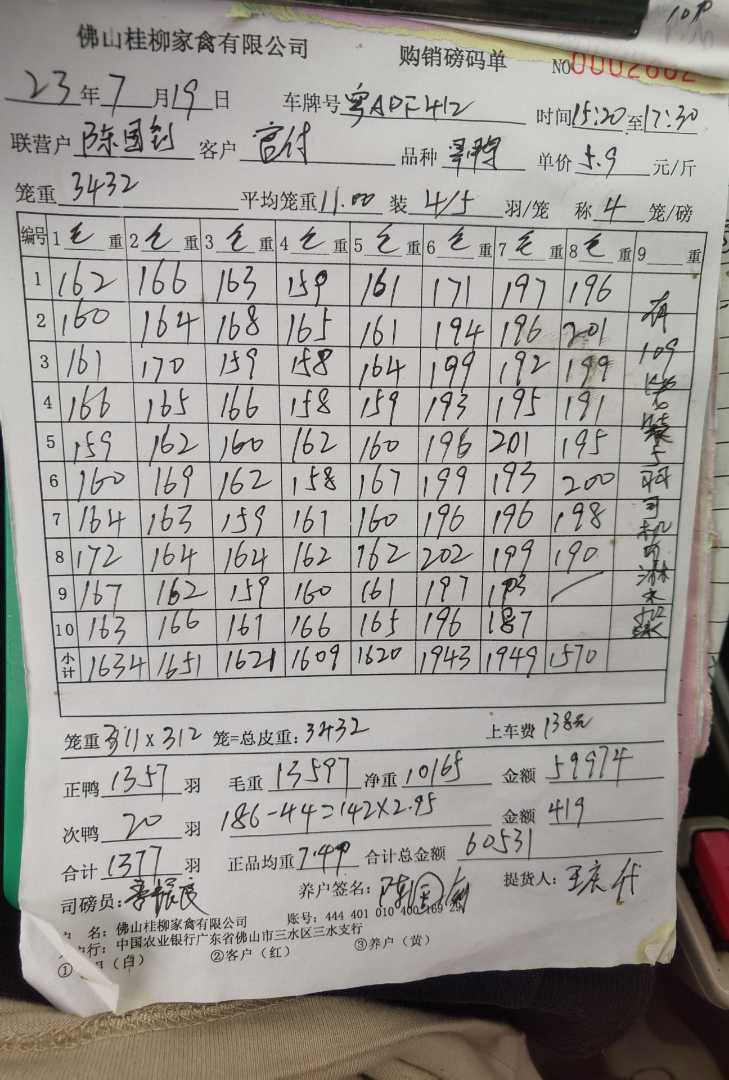 佛山桂柳家禽有限公司 购销磅码单 NO0002602
23年7月19日 车牌号 粤ADF412 时间15:20至17:30
联营户 陈国钊 客户 富付 品种 单价5.9元/斤
笼重 3432 平均笼重11.00 装4/5羽/笼 称4笼/磅
编号 1毛重 2毛重 3毛重 4毛重 5毛重 6毛重 7毛重 8毛重 9重
1 162 166 163 159 161 171 197 196
2 160 164 168 165 161 194 196 201
3 161 170 159 158 164 199 192 199
4 166 165 166 158 159 193 195 191
5 159 162 160 162 160 196 201 195
6 160 169 162 158 167 199 193 200
7 164 163 159 161 160 196 196 198
8 172 164 164 162 162 202 199 190
9 167 162 159 160 161 197 193
10 163 166 161 166 165 196 187
小计 1634 1651 1621 1609 1620 1943 1949 1570
有109
笼重 11 x 312 笼=总皮重:3432 上车费 138元
正鸭1357羽 毛重13597 净重10165 金额59974
次鸭20羽 186-44=142×2.95 金额419
合计1377羽 正品均重7.49 合计总金额60531
司磅员: 养户签名:陈国钊 提货人:王庆代
名:佛山桂柳家禽有限公司 账号:444 401 010 400 169 29
行:中国农业银行广东省佛山市三水区三水支行
① (白) ②客户(红) ③养户(黄)